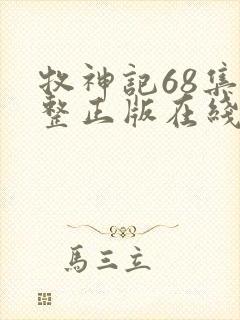 牧神記68集
整正版在綫
馬三立